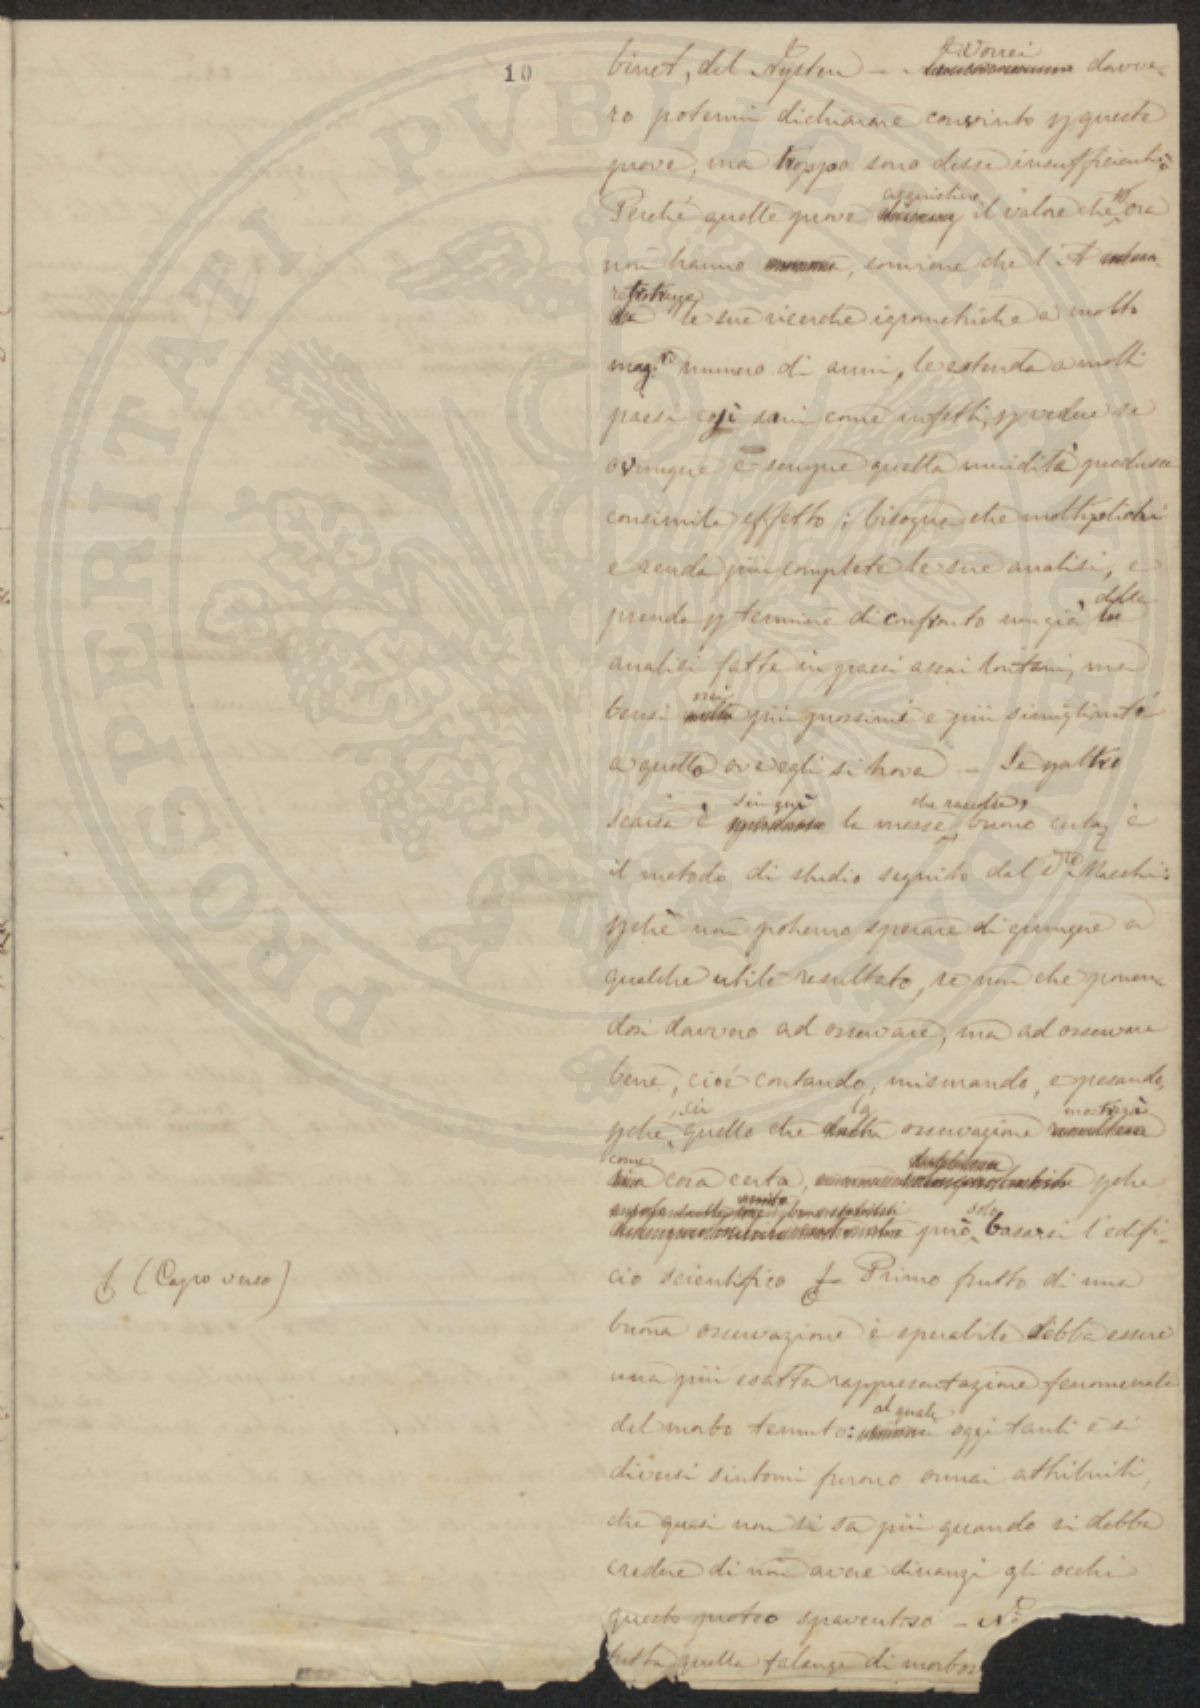 10
binet, del Nysten – Vorrei davve-
ro potermi dichiarare convinto p queste
prove, ma troppo sono desse insufficienti.
Perché quelle prove acquistino il valore che ora
non hanno, conviene che l'A
retrotragga le sue ricerche igrometriche a molto
mag.re numero di anni, le estenda a molti
paesi così sani come infetti, p vedere se
ovunque e sempre quella umidità producesse
consimile effetto; bisogna che moltiplichi
e renda più complete le sue analisi, e
prenda p termine di confronto non già delle
analisi fatte in paesi assai lontani, ma
bensì nei più prossimi e più simiglianti
a quello ove egli si trova – Se p altro
scarsa è sin qui la messe che raccolse, buono certo è
il metodo di studio seguito dal D.re Macchi:
pchè non potremo sperare di giungere a
qualche utile resultato, se non che ponen-
doci davvero ad osservare, ma ad osservare
bene, cioè contando, misurando, e pesando,
pche su quello che la osservazione mostrerà
come cosa certa, pche
può solo basarsi l'edifi-
cio scientifico Primo frutto di una
(Capo verso)
buona osservazione è sperabile debba essere
una più esatta rappresentazione fenomenale
del morbo temuto: al quale oggi tanti e sì
diversi sintomi furono omai attribuiti,
che quasi non si sa più quando si debba
credere di non avere dinanzi gli occhi
questo proteo spaventoso –
tutta quella falange di morbos
PROSPERITATI PVBLICAE